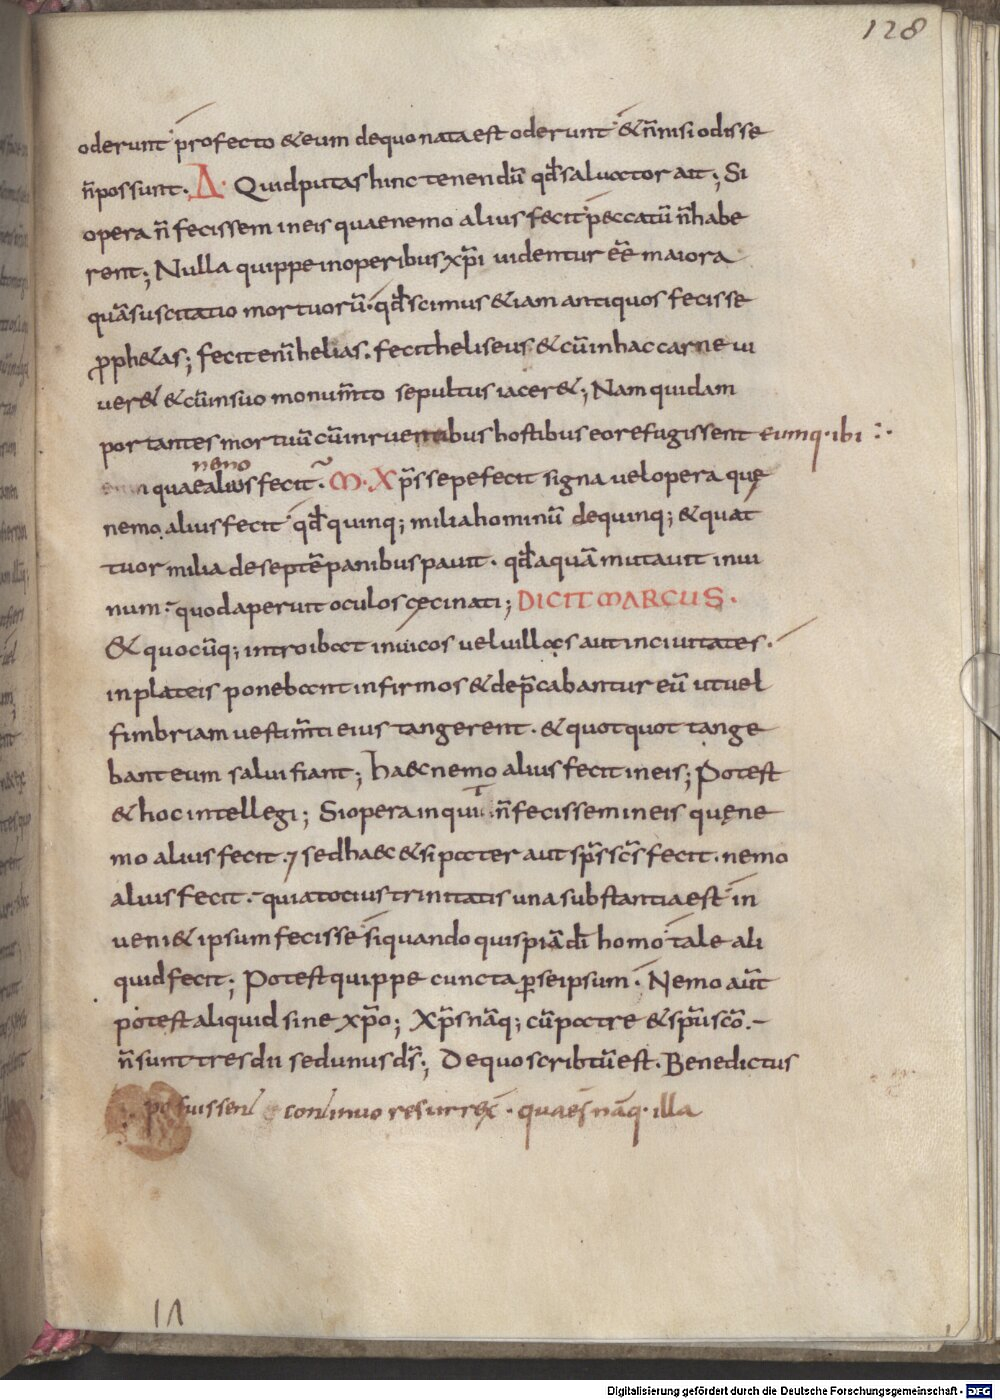 128
oderunt profecto & eum de quo nata est oderunt & n̄ nisi odisse
n̄ possunt. Δ. Quid putas hinc tenendū qđ saluator ait; Si
opera n̄ fecissem in eis quae nemo alius fecit peccatū n̄ habe
rent; Nulla quippe in operibus xp̄i uidentur eē maiora
quā suscitatio mortuorū. qđ scimus & iam antiquos fecisse
ꝓph&as; fecit enī helias. fecit heliseus & cū in hac carne ui
uer& & cū in suo monum̄to sepultus iacer&; Nam quidam
portantes mortuū cū inruentibus hostibus eo refugissent eumq. ibi :·
nemo
quae alius fecit. M. Xp̄s sepe fecit signa uel opera quę
nemo alius fecit qđ quinq; milia hominū de quinq; & quat
tuor milia de septē panibus pauit. qđ aquā mutauit in ui
num. quod aperuit oculos cęci nati; DICIT MARCUS.
& quocūq; introibat in uicos uel uillas aut in ciuitates.
in plateis ponebant infirmos & dep̄cabantur eū ut uel
fimbriam uestim̄ti eius tangerent. & quotquot tange
bant eum salui fiant; haec nemo alius fecit in eis; Potest
& hoc intellegi; Si opera inquit n̄ fecissem in eis quę ne
mo alius fecit. 7 sed haec & si pater aut sp̄s sc̄s fecit. nemo
alius fecit. quia tocius trinitatis una substantia est in
ueni& ipsum fecisse si quando quispiā dī homo tale ali
quid fecit; Potest quippe cuncta ꝑ se ipsum. Nemo aūt
potest aliquid sine xp̄o; Xp̄s nāq; cū patre & sp̄u sc̄o.
n̄ sunt tres dii sed unus ds̄; De quo scribtū est. Benedictus
posuissent continuo resurrex̄. quaes nāq. illa
Digitalisierung gefördert durch die Deutsche Forschungsgemeinschaft - DFG